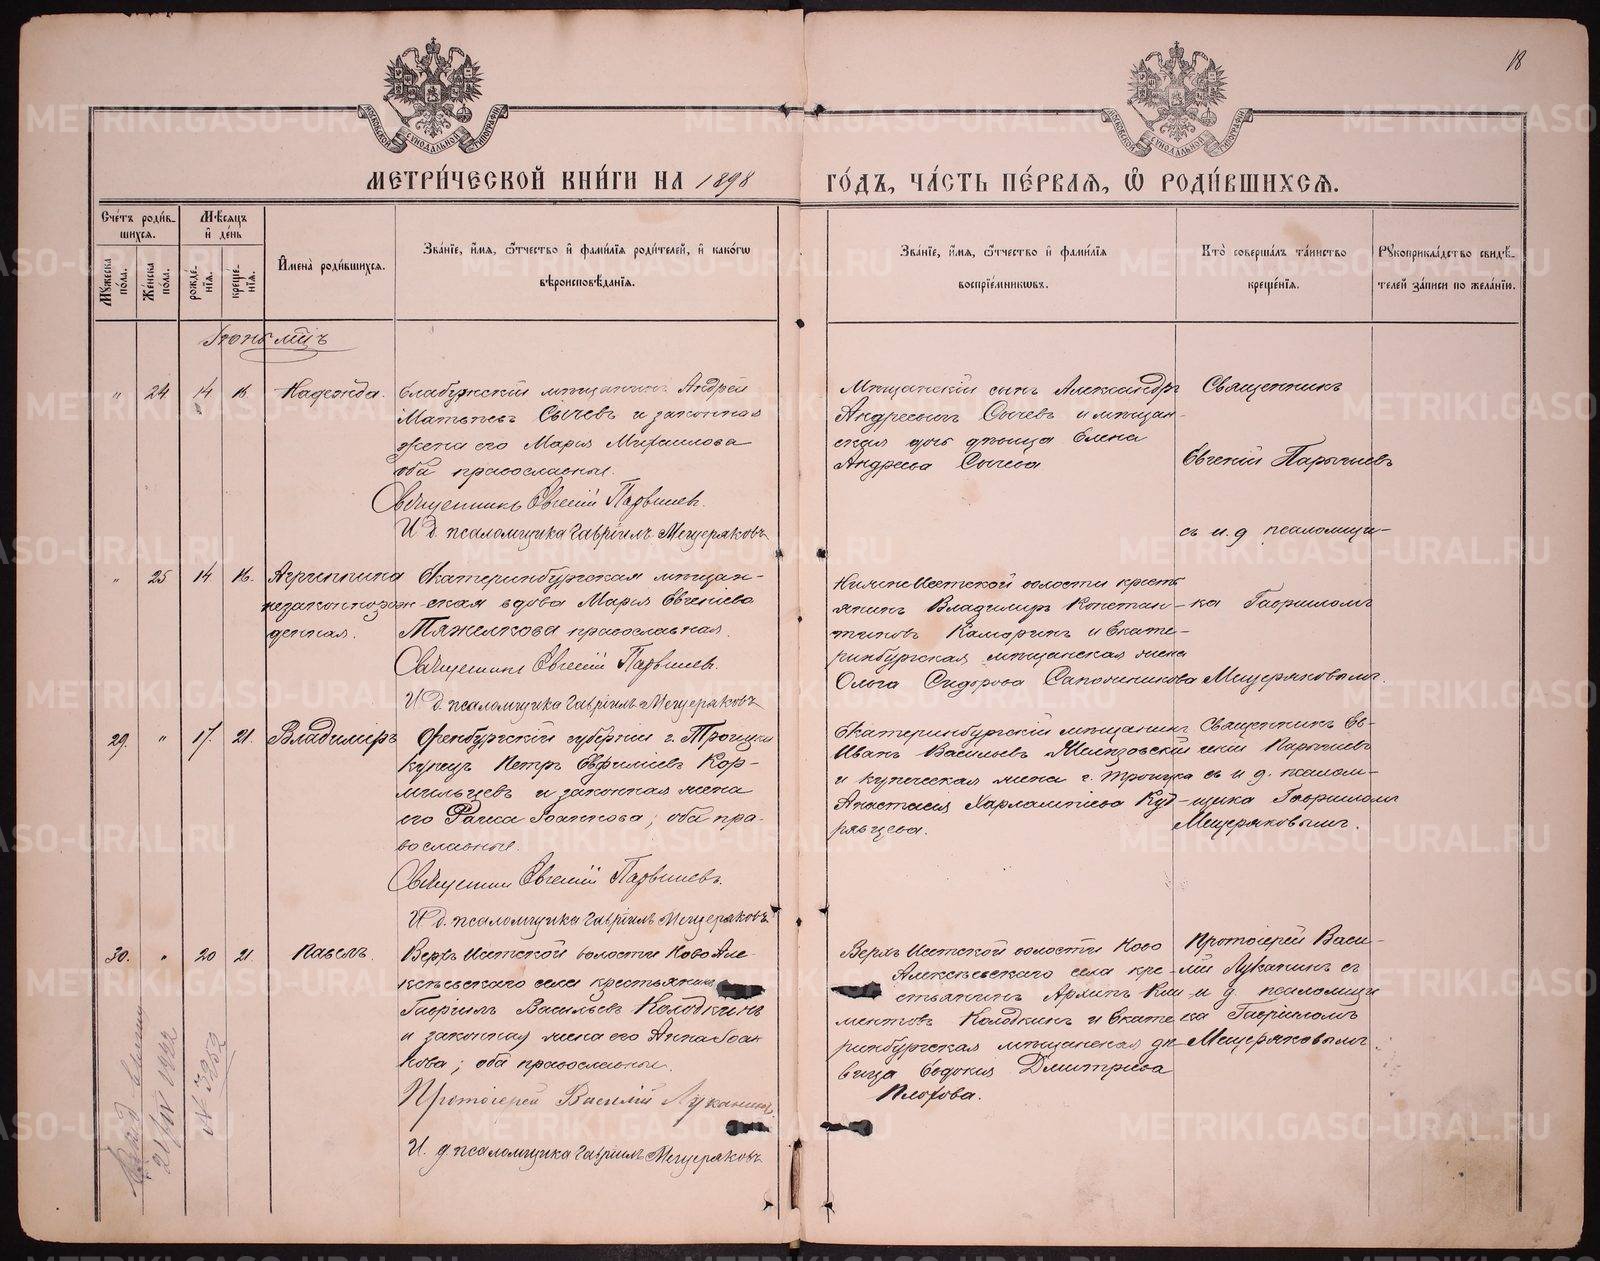 18
МОСКОВСКОЙ СѴНОДАЛЬНОЙ ТИПОГРАФІИ
МОСКОВСКОЙ СѴНОДАЛЬНОЙ ТИПОГРАФІИ
МЕТРИ́ЧЕСКОЙ КНИ́ГИ НА 1898 ГО́ДЪ, ЧА́СТЬ ПЕ́РВАѦ, Ѽ РОДИ́ВШИХСѦ.
Сче́тъ роди́в-
шихсѧ.
Мꙋ́жеска по́ла.
Же́нска по́ла.
Мѣ́сѧцъ
и҆ де́нь
рожде́-
нїѧ.
креще́-
нїѧ.
И҆мена̀ роди́вшихсѧ.
Зва́нїе, и҆́мѧ, ѻ҆́тчество и҆ фами́лїѧ роди́телей, и҆ како́гѡ
вѣроисповѣ́данїѧ.
Зва́нїе, и҆́мѧ, ѻ҆́тчество и҆ фами́лїѧ
воспрїе́мникѡвъ.
Кто̀ соверша́лъ та́инство
креще́нїѧ.
Рꙋкоприкла́дство свидѣ́-
телей за́писи по жела́нїю.
Іюнь мѣ-ць
" 24 14 16 Надежда.
Елабужскій мѣщанинъ Андрей
Матѳѣевъ Сычевъ и законная
жена его Марія Михаилова
оба православные.
Священникъ Евгеній Парышевъ.
И д. псаломщика Гавріилъ Мещеряковъ
Мѣщанскій сынъ Александръ
Андреевичъ Сычевъ и мѣщан-
ская дочь дѣвица Елена
Андреева Сычева
Священникъ
Евгеній Парышевъ
съ и. д псаломщи-
" 25 14 16. Агриппина
незаконнорож-
денная.
Екатеринбургская мѣщан-
ская вдова Марія Евгеніева
Тяжелкова православная.
Священникъ Евгеній Парышевъ.
И Д. псаломщика Гавріилъ Мещеряковъ
Нижне Исетской волости кресть
янинъ Владиміръ Констан-
тиновъ Камаринъ и Екате-
ринбургская мѣщанская жена
Ольга Сидорова Сапожникова
ка Гавріиломъ
Мещеряковымъ.
29. " 17. 21. Владиміръ
Оренбургской губерніи г. Троицка
купецъ Петръ Евфиміевъ Кор-
мильцевъ и законная жена
его Раиса Іоаннова; оба пра-
вославные.
Священникъ Евгеній Парышевъ.
И д. псаломщика Гавріилъ Мещеряковъ.
Екатеринбургскій мѣщанинъ
Иванъ Васильевъ
и купеческая жена г. Троицка
Анастасія Харлампіева Куд-
рявцева.
Священникъ Ев-
геній Парышевъ
съ и д. псалом-
щика Гавріиломъ
Мещеряковымъ.
30. " 20 21. Павелъ.
Верхъ Исетской волости Ново Але-
ксѣевскаго села крестьянинъ
Гавріилъ Васильевъ Колодкинъ
и законная жена его Анна Іоан
нова; оба православные.
Протоіерей Василій Луканинъ.
И. д псаломщика Гавріилъ Мещеряковъ
Верхъ Исетской волости Ново
Алексѣевскаго села кре-
стьянинъ Архипъ Кли
ментовъ Колодкинъ и Екате
ринбургская мѣщанская дѣ-
вица Евдокія Дмитріева
Плохова.
Протоіерей Васи-
лій Луканинъ съ
и д псаломщи
ка Гавріиломъ
Мещеряковымъ.
21/IV 1922
№ 3252
METRIKI.GASO-URAL.RU